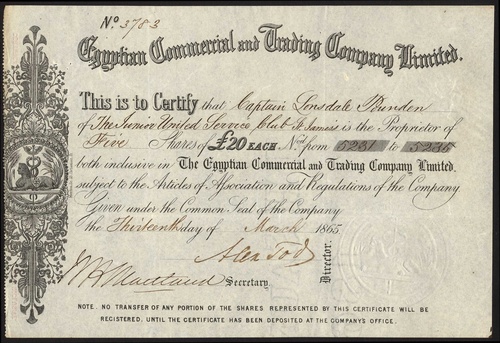 No. 3783
Egyptian Commercial and Trading Company Limited.
This is to Certify that Captain Lonsdale
of The Junior United Service Club St. James's is the Proprietor of
Five Shares of £20 EACH Nod. from 5231 to 5235
both inclusive in The Egyptian Commercial and Trading Company Limited,
subject to the Articles of Association and Regulations of the Company
Given under the Common Seal of the Company
the Thirteenth day of March 1865
Alex Tod Director.
Maitland Secretary.
NOTE. NO TRANSFER OF ANY PORTION OF THE SHARES REPRESENTED BY THIS CERTIFICATE WILL BE
REGISTERED, UNTIL THE CERTIFICATE HAS BEEN DEPOSITED AT THE COMPANY'S OFFICE.